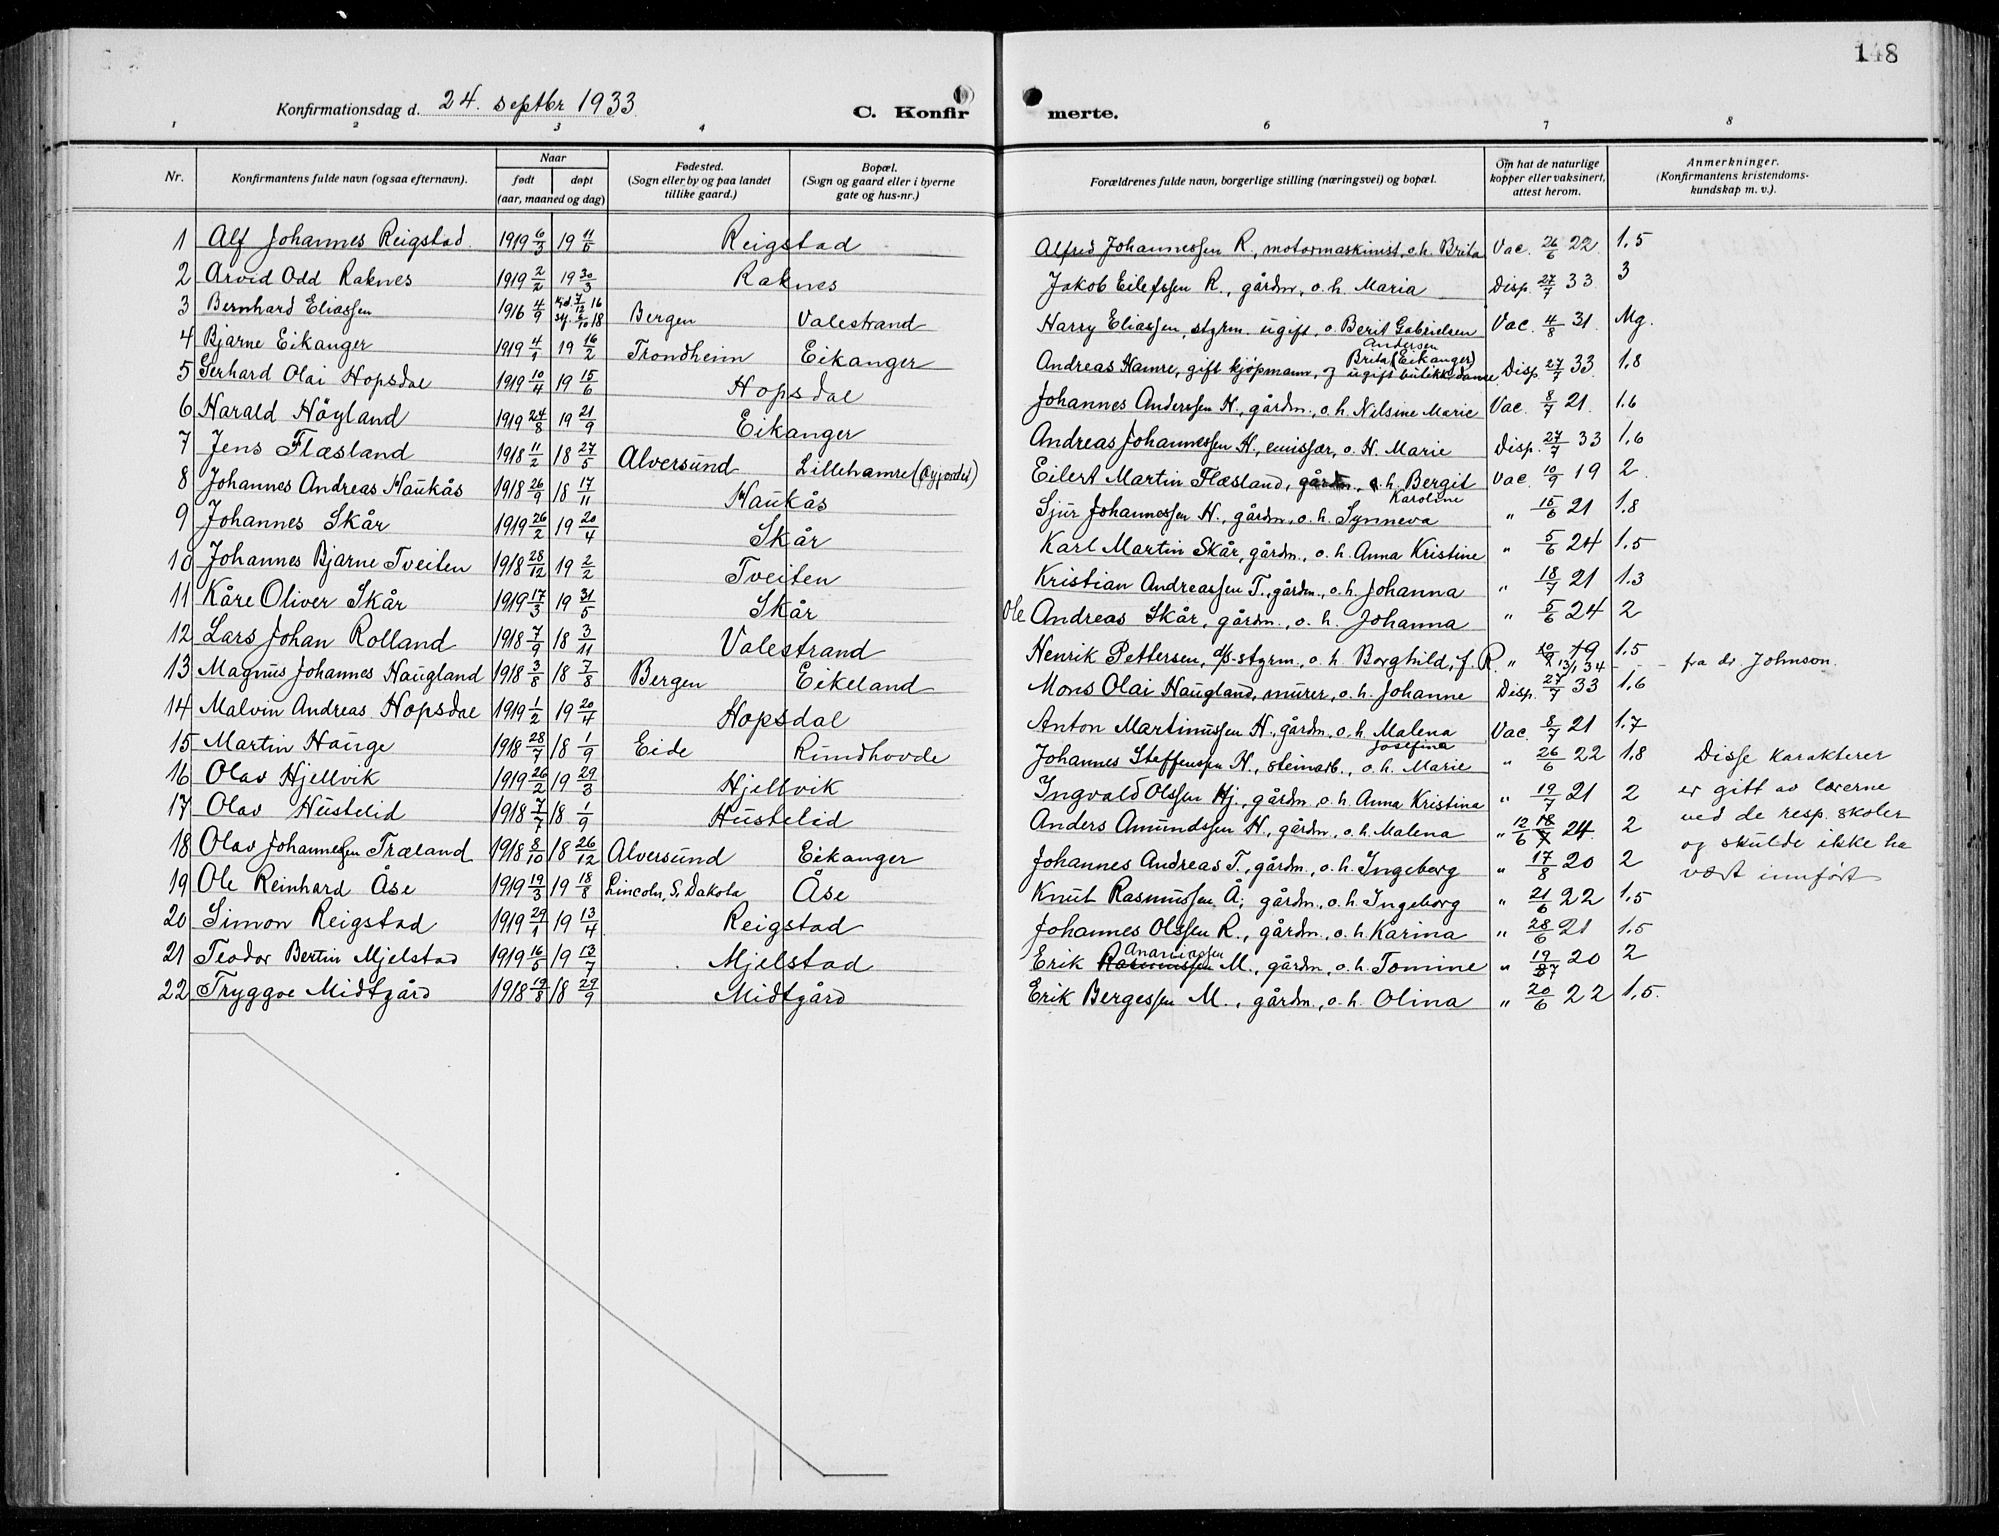 148
Konfirmationsdag d. 24. septbr 1933
C. Konfirmerte.
1 2 3 4 6 7 8
Nr. Konfirmantens fulde navn (ogsaa efternavn). Naar født døpt (aar, maaned og dag) Fødested. (Sogn eller by og paa landet tillike gaard.) Bopæl. (Sogn og gaard eller i byerne gate og hus-nr.) Forældrenes fulde navn, borgerlige stilling (næringsvei) og bopæl. Om hat de naturlige kopper eller vaksinert, attest herom. Anmerkninger. (Konfirmantens kristendomskundskap m. v.).
1 Alf Johannes Reigstad 1919 6/3 19 11/5 Reigstad Alfred Johannessen R., motormaskinist, o.h. Brita Vac. 26/6 22. 1.5
2 Arvid Odd Raknes 1919 2/2 19 30/3 Raknes Jakob Eilefssen R., gårdm, o.h. Maria Disp. 27/7 33. 3
3 Bernhard Eliassen 1916 4/9 16 18 Bergen Valestrand Harry Eliassen, styrm. ugift, o Berit Gabrielsen Vac. 4/8 31. Mg.
4 Bjarne Eikanger 1919 4/1 19 16/2 Trondheim Eikanger Andreas Hamre, gift kjøpmann, og ugift butikkdame Brita Andersen (Eikanger) Disp. 27/7 33. 1.8
5 Gerhard Olai Hopsdal 1919 10/4 19 15/6 Hopsdal Johannes Anderssen H., gårdm., o.h. Nilsine Marie Vac. 8/7 21. 1.6
6 Harald Höyland 1919 24/8 19 21/9 Eikanger Andreas Johannessen H., emissær, o. H. Marie Disp. 27/7 33 1,6
7 Jens Flæsland 1918 11/2 18 27/5 Alversund Lillehamre Eilert Martin Flæsland, gårdm., o.h. Bergit Vac. 10/9 19 2.
8 Johannes Andreas Haukås 1918 26/9 18 17/11 Haukås Sjur Johannessen H., gårdm., o.h. Synneva Karoline " 15/6 21 1.8
9 Johannes Skår 1919 26/2 19 20/4 Skår Karl Martin Skår, gårdm., o.h. Anna Kristine " 5/6 24 1.5
10 Johannes Bjarne Tveiten 1918 28/12 19 2/2 Tveiten Kristian Andreassen T., gårdm., o.h. Johanna " 18/7 21 1.3
11 Kåre Oliver Skår 1919 17/3 19 31/5 Skår Ole Andreas Skår, gårdm., o. h. Johanna " 5/6 24 2
12 Lars Johan Rolland 1918 7/9 18 3/11 Valestrand Henrik Pettersen, d/s-styrm., o. h Borghild, f. R. " 10/9 19 13/1 34 1.5 fra dr Johnson.
13 Magnus Johannes Haugland 1918 3/8 18 7/8 Bergen Eikeland Mons Olai Haugland, murer, o.h. Johanne Disp. 27/7 33 1.6
14 Malvin Andreas Hopsdal 1919 1/2 19 20/4 Hopsdal Anton Martinussen H., gårdm, o.h. Malena Vac. 8/7 21 1.7
15 Martin Hauge 1918 28/7 18 1/9 Eide Rundhovde Johannes Steffenssen H., steinarb., o.h. Marie Josefina " 26/6 22 1,8
16 Olav Hjellvik 1919 26/2 19 29/3 Hjellvik Ingvald Olssen Hj., gårdm, o.h. Anna Kristina " 19/7 21 2
17 Olav Hustelid 1918 7/7 18 1/9 Hustelid Anders Amundssen H., gårdm, o.h. Malena " 12/6 18/7 24. 2
18 Olav Johannessen Træland 1918 8/10 18 26/12 Alversund Eikanger Johannes Andreas T., gårdm, o.h. Ingeborg " 17/8 20 2
19 Ole Reinhard Åse 1919 19/3 19 18/8 Lincoln, S. Dakota Åse Knut Rasmussen Å., gårdm., o.h. Ingeborg " 21/6 22 1,5
20 Simon Reigstad 1919 29/1 19 13/4 Reigstad Johannes Olssen R., gårdm., o.h. Karina " 28/6 21 1.5
21 Teodor Bertin Mjelstad 1919 16/5 19 13/7 Mjelstad Erik Rasmussen M., gårdm, o.h. Tomine " 20 2
22 Tryggve Midtgård 1918 19/8 18 29/9 Midtgård Erik Bergessen M., gårdm., o.h. Olina " 20/6 22 1,5.
Disse karakterer
er gitt av lærerne
ved de resp. skoler
og skulde ikke ha
vært innført